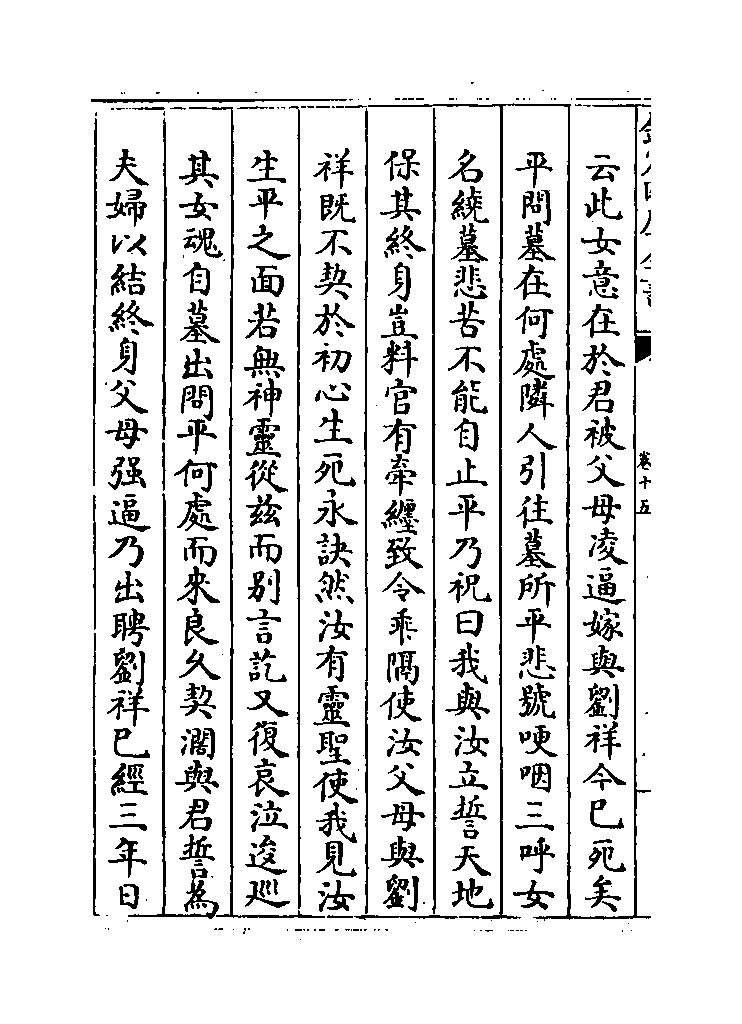 云此女意在於君被父母凌逼嫁與劉祥今巳死矣
平問墓在何處隣人引往墓所平悲號哽咽三呼女
名繞墓悲苦不能自止平乃祝曰我與汝立誓天地
保其終身豈料官有牽纏致令乖隔使汝父母與劉
祥既不契於初心生死永訣然汝有靈聖使我見汝
生平之面若無神靈從兹而别言訖又復哀泣逡廵
其女魂自墓出問平何處而來良久契濶與君誓為
夫婦以結終身父母强逼乃出聘劉祥巳經三年日
卷十五